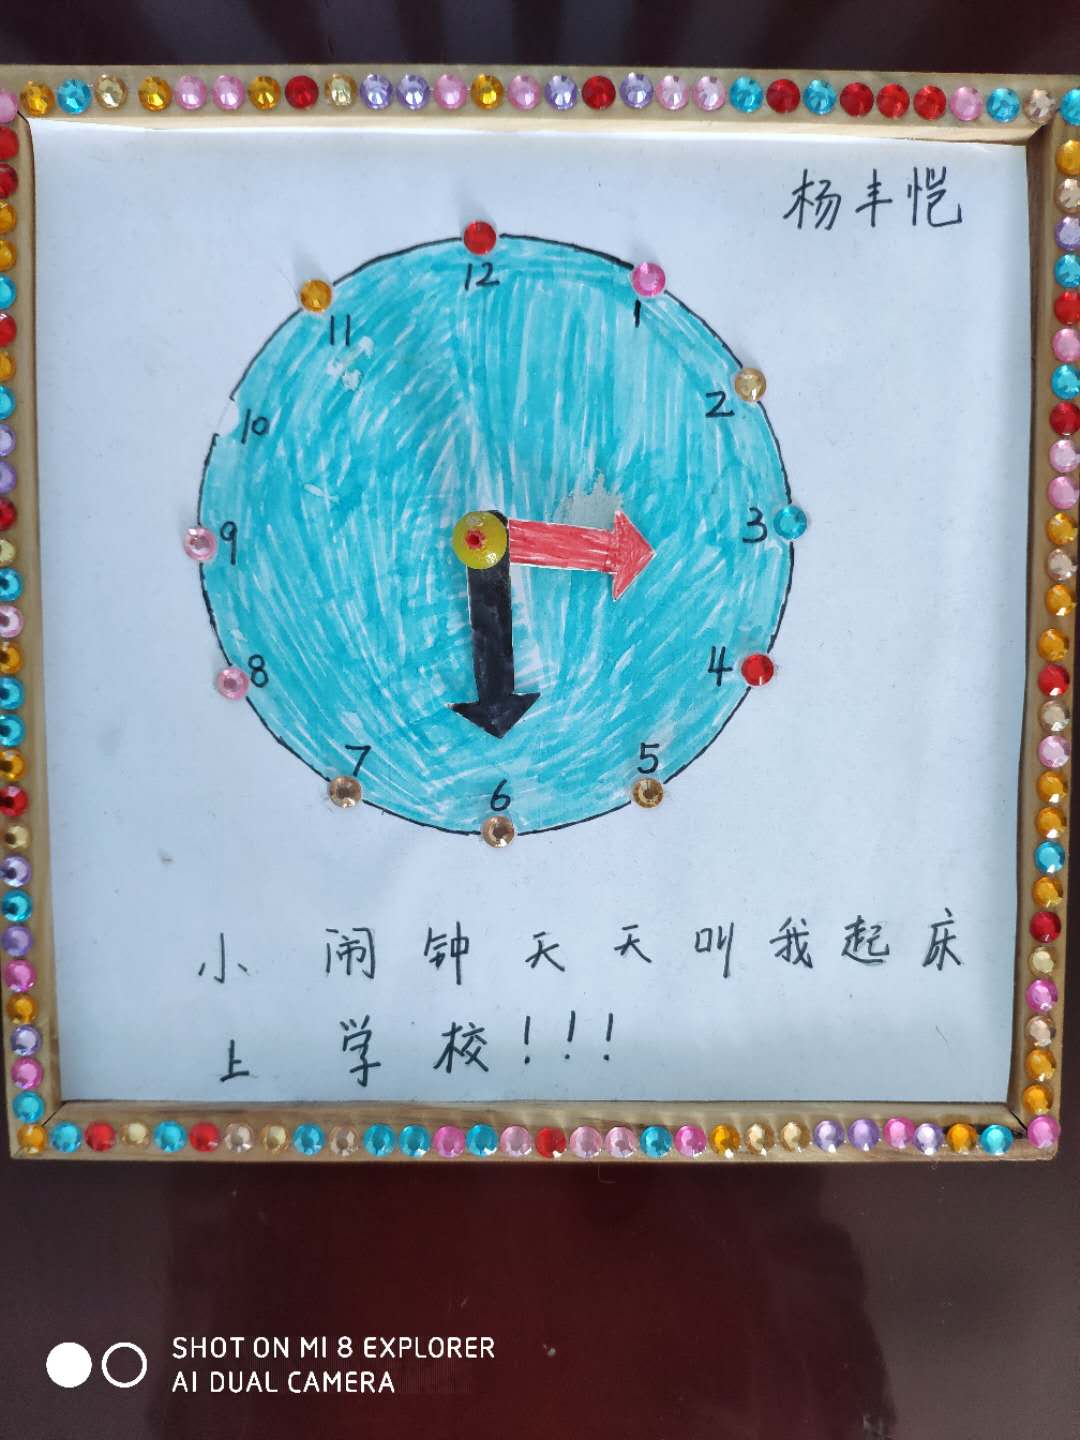 杨丰恺
12
11
1
10
2
9
3
8
4
7
5
6
小闹钟天天叫我起床
上学校!!!
SHOT ON MI 8 EXPLORER
AI DUAL CAMERA